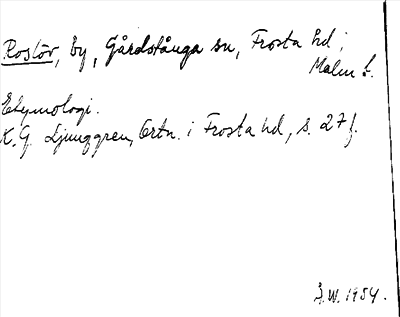 Rostår, by, Gårdstånga sn, Frosta hd;
Malm l.
Etymologi.
K.G. Ljunggren, Ortn. i Frosta hd, s. 27 f.
Å.W. 1954.